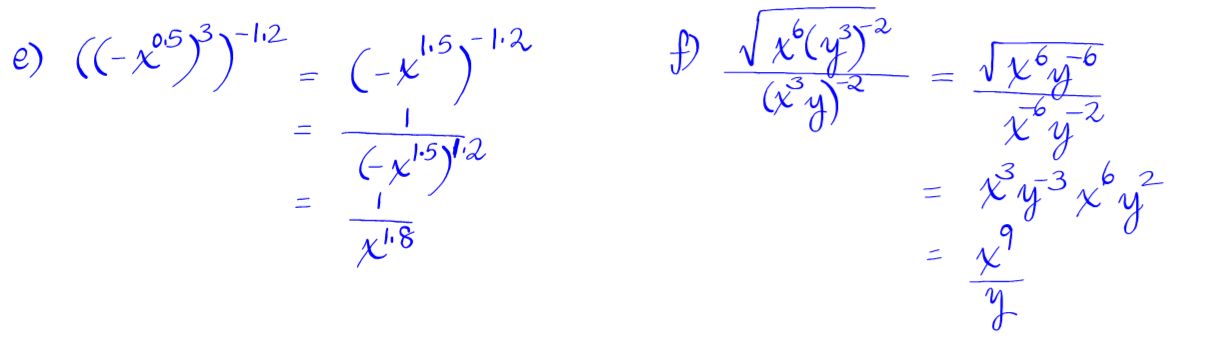 e) ((-x^0.5)^3)^-1.2 = (-x^1.5)^-1.2
= 1/(-x^1.5)^1.2
= 1/x^1.8
f) √(x^6(y^3)^-2)/(x^3y)^-2 = √(x^6y^-6)/(x^-6y^-2)
= x^3y^-3x^6y^2
= x^9/y